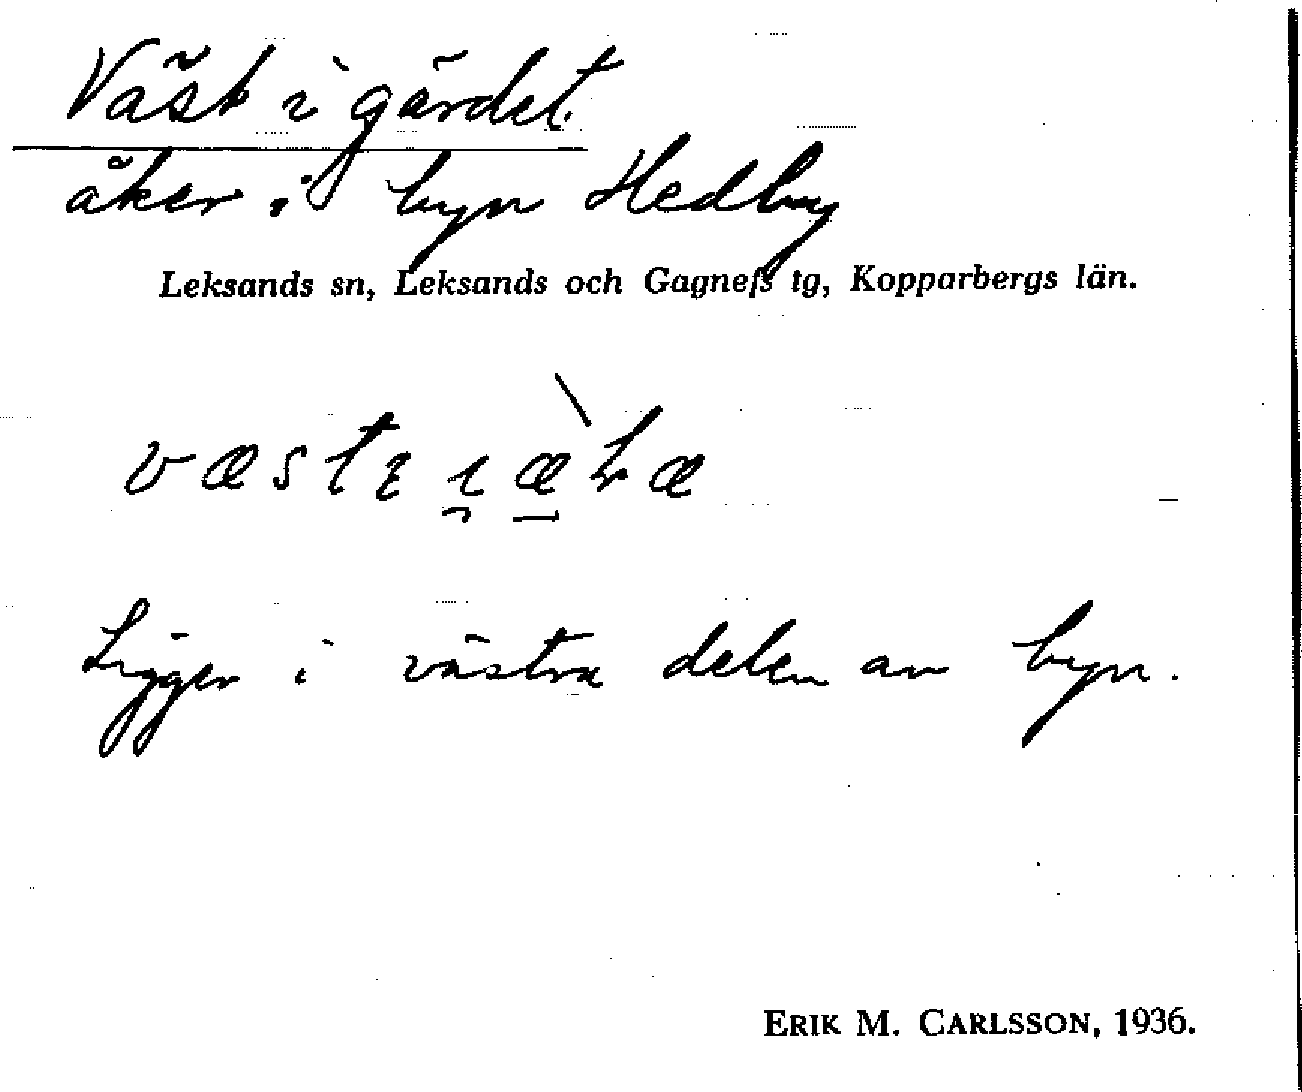 Väst i gärdet
åker i byn Hedby
Leksands sn, Leksands och Gagnefs tg, Kopparbergs län.
Ligger i västra delen av byn.
ERIK M. CARLSSON, 1936.